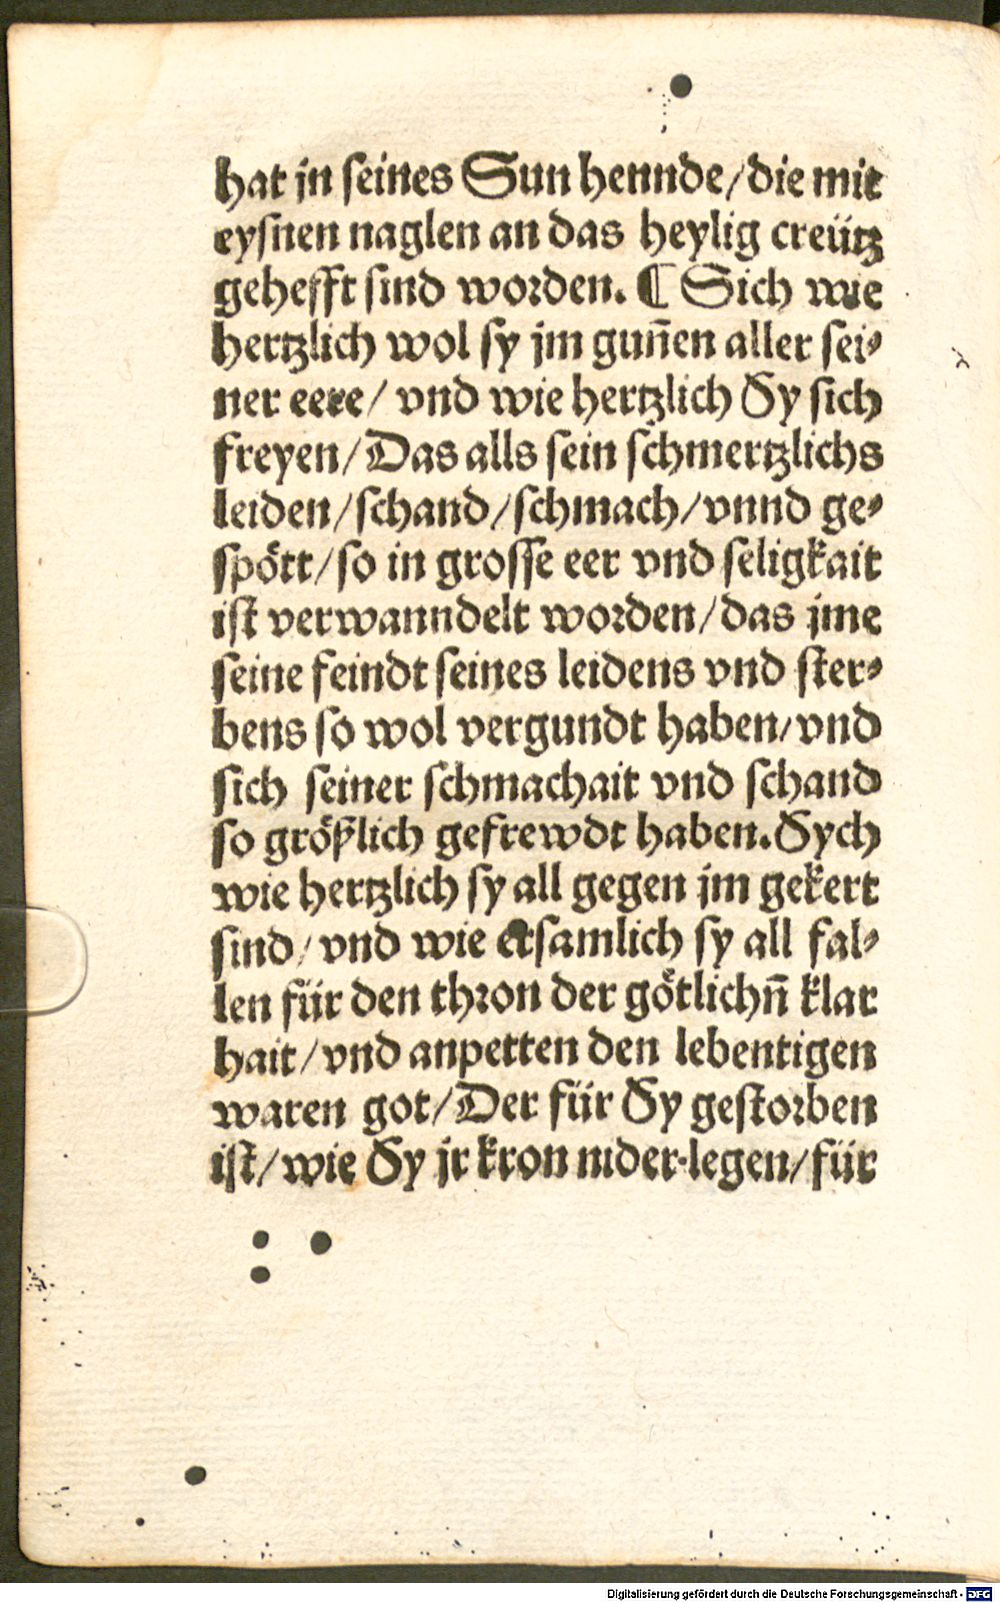 hat jn seines Sun hennde/die mit
eysnen naglen an das heylig creütz
gehefft sind worden. ¶ Sich wie
hertzlich wol sy jm gun̄en aller sei⸗
ner eere/ vnd wie hertzlich Sy sich
freyen/Das alls sein schmertzlichs
leiden/schand/schmach/vnnd ge⸗
spött/so in grosse eer vnd seligkait
ist verwanndelt worden/das jme
seine feindt seines leidens vnd ster⸗
bens so wol vergundt haben/vnd
sich seiner schmachait vnd schand
so größlich gefrewdt haben.Sych
wie hertzlich sy all gegen jm gekert
sind/vnd wie ersamlich sy all fal⸗
len für den thron der götlichn̄ klar
hait/vnd anpetten den lebentigen
waren got/Der für Sy gestorben
ist/wie Sy jr kron nider-legen/für
Digitalisierung gefördert durch die Deutsche Forschungsgemeinschaft - DFG